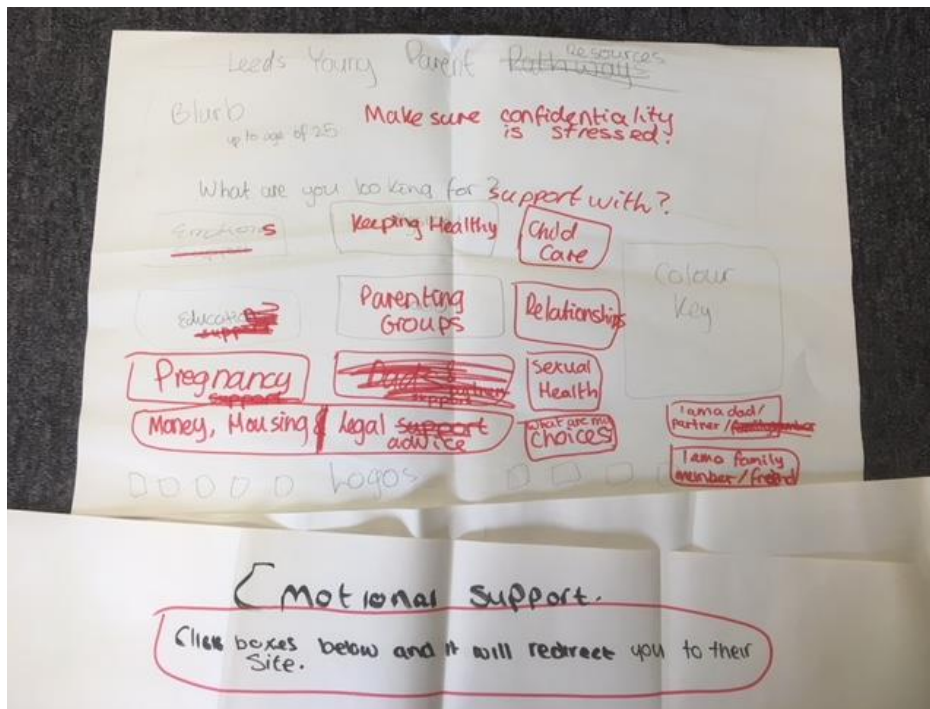 Resources
Leeds Young Parent Pathways
Blurb
up to age of 25
Make sure confidentiality
is stressed!
What are you looking for? support with?
Emotions
Keeping Healthy
Child
Care
Colour
Key
Education
support
Parenting
Groups
Relationships
Pregnancy
support
Dads &
partner
support
Sexual
Health
Money, Housing & legal support
advice
What are my
choices
I am a dad/
partner/
I am a family
member/friend
Logos
Emotional support.
Click boxes below and it will redirect you to their
Site.